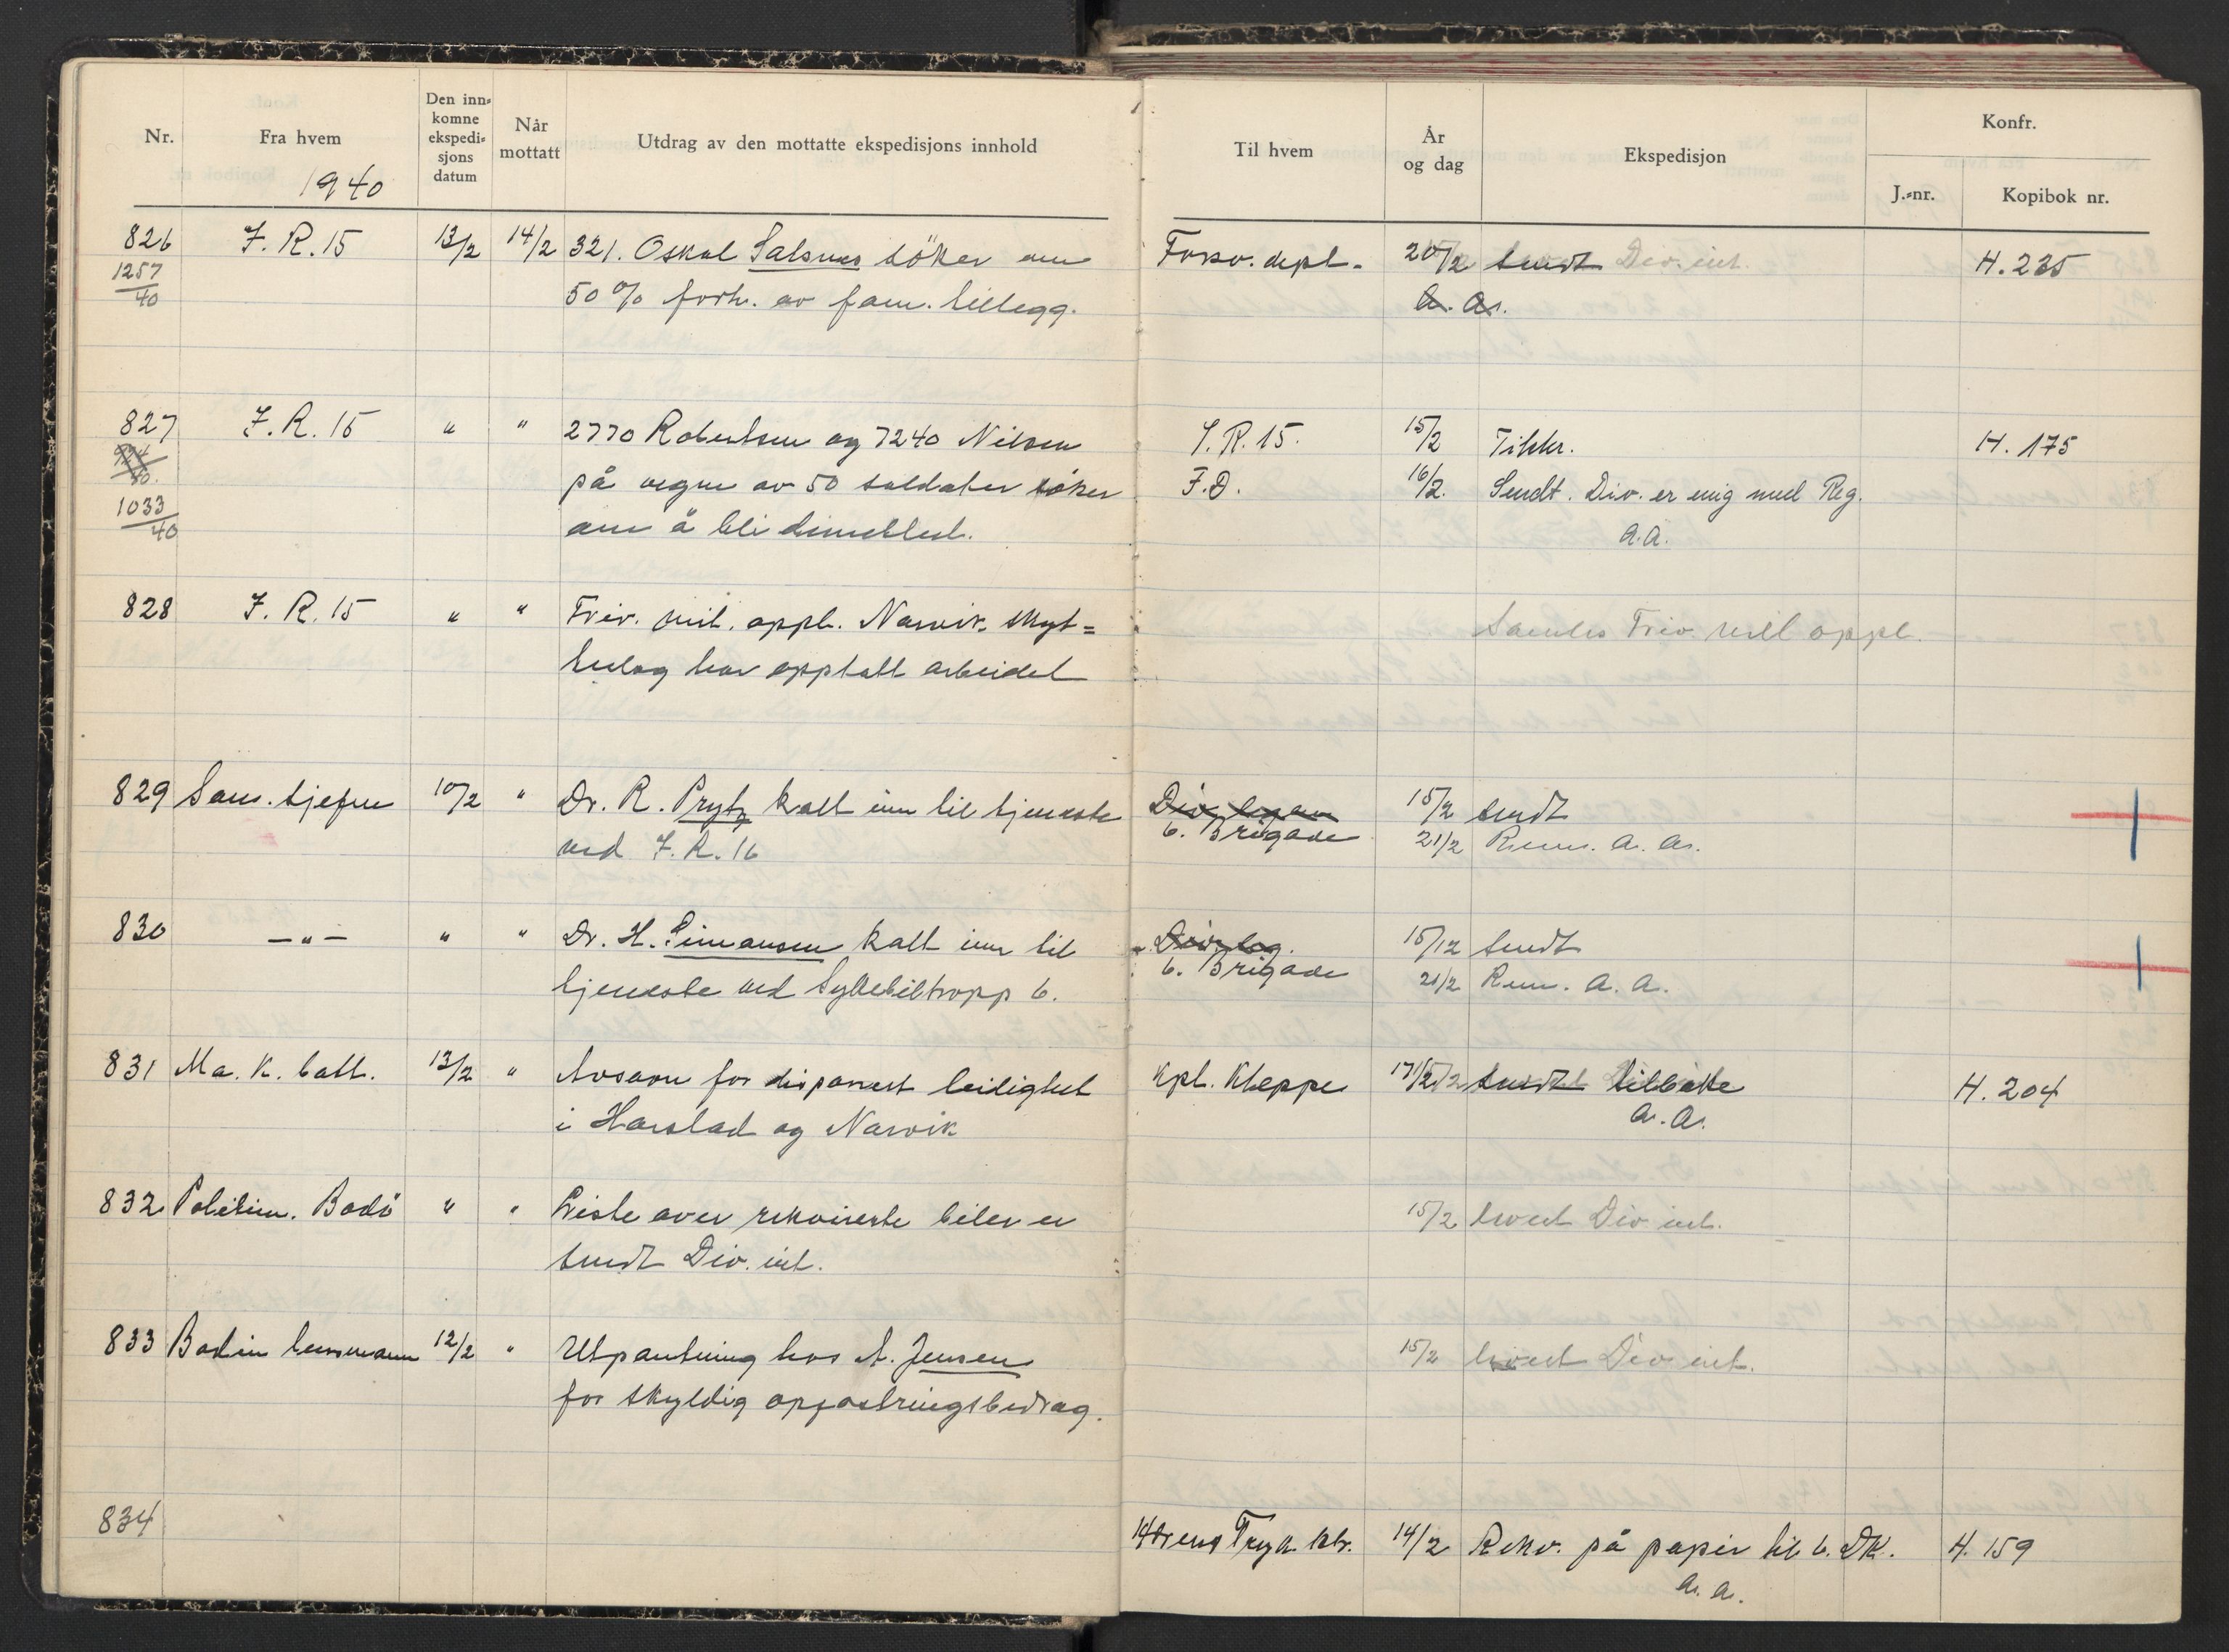 Nr.
Fra hvem
Den inn-
komne
ekspedi-
sjons
datum
Når
mottatt
Utdrag av den mottatte ekspedisjons innhold
Til hvem
År
og dag
Ekspedisjon
Konfr.
J.-nr.
Kopibok nr.
1940
826 I. R. 15 13/2 14/2 321. Oskal Salsnes söker om Forsv. dept. 20/2 sendt Div. int. H. 235
1257/40 50 % forh. av fam. tillegg. a. a.
827 I. R. 15 " " 2770 Robertsen og 7240 Nilsen I. R. 15. 15/2 Tilskr. H. 175
på vegne av 50 soldater söker F.D. 16/2. Sendt. Div. er enig med Reg.
1033/40 om å bli dimittert. a.a.
828 I. R. 15 " " Friv. mil. oppl. Narvik skyt= Samles Friv. mil oppl.
terlag har opptatt arbeidet
829 San. sjefen 10/2 " Dr. R. Prytz kalt inn til tjeneste 15/2 sendt
ved I. R. 16 6. Brigade 21/2 Rem. a. a.
830 — " — " " Dr. H. Simonsen kalt inn til Div. leg. 15/12 sendt
tjeneste ved Sykebiltropp 6. 6. Brigade 21/2 Rem. a. a.
831 Ma. K. batt. 13/2 " Ansvar for disponert leilighet Kpt. Kleppe 17/2 sendt tilbake H. 204
i Harstad og Narvik a. a.
832 Politim. Bodö " " Liste over rekvirerte biler er 15/2 levert Div. int.
sendt Div. int.
833 Bodin lensmann 12/2 " Utpantning hos A. Jensen 15/2 levert Div. int.
for skyldig oppfostringsbidrag.
834 Hærens Tryk. ktr. 14/2 Rekv. på papir til 6. DK. H. 159
a. a.